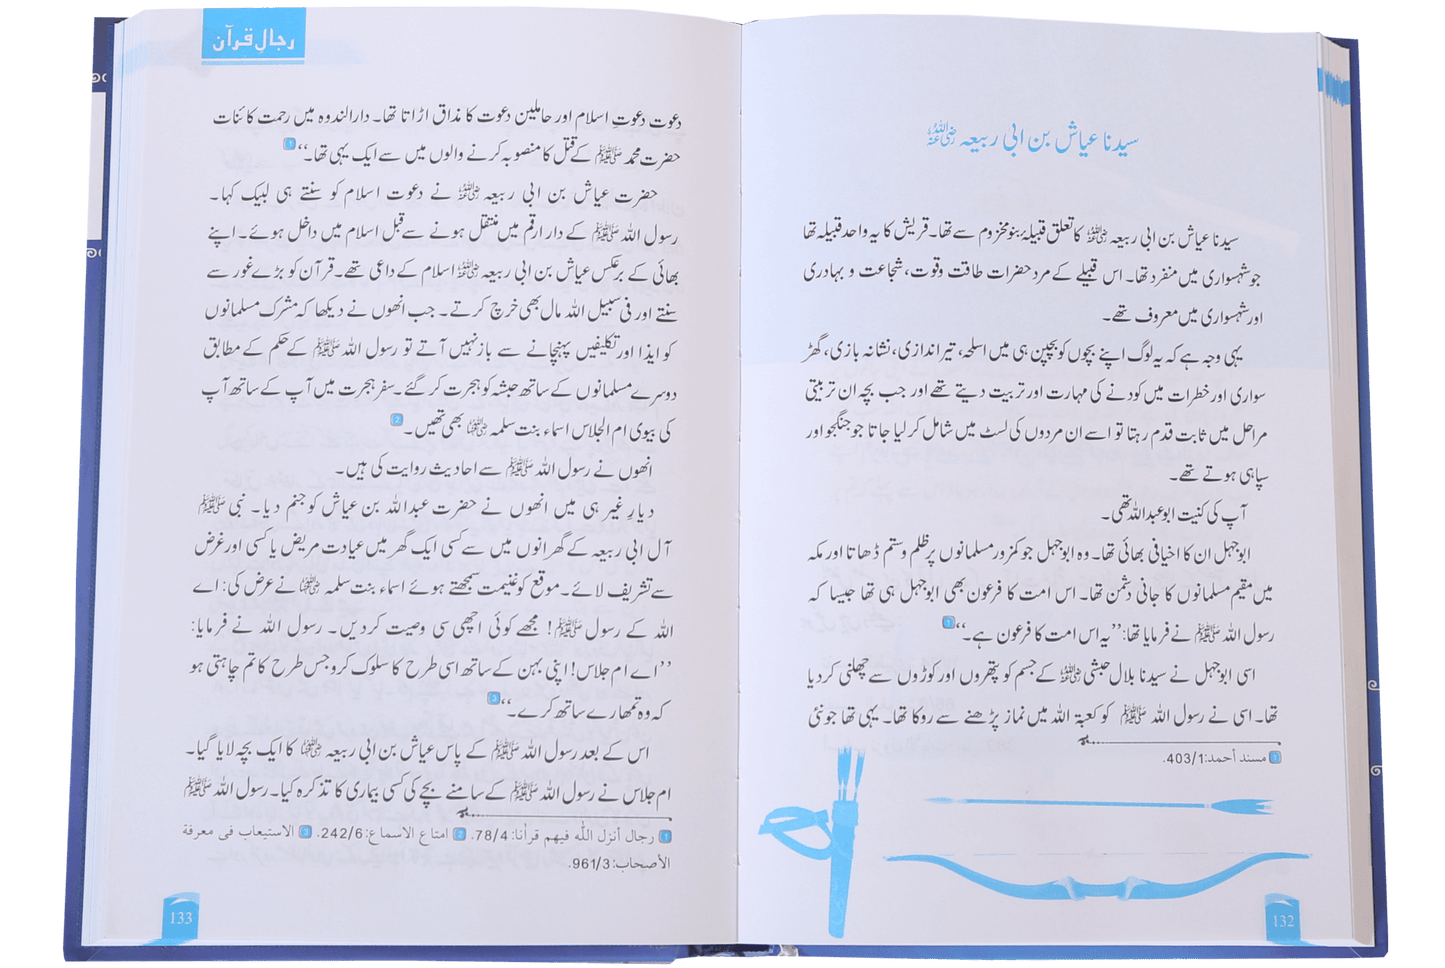 سیدنا عیاش بن ابی ربیعہ رضی اللہ عنہ
سیدنا عیاش بن ابی ربیعہ رضی اللہ عنہ کا تعلق قبیلۂ بنو مخزوم سے تھا۔ قریش کا یہ واحد قبیلہ تھا
جو شہسواری میں منفرد تھا۔ اس قبیلے کے مرد حضرات طاقت وقوت، شجاعت و بہادری
اور شہسواری میں معروف تھے۔
یہی وجہ ہے کہ یہ لوگ اپنے بچوں کو بچپن ہی میں اسلحہ، تیر اندازی، نشانہ بازی، گھڑ
سواری اور خطرات میں کودنے کی مہارت اور تربیت دیتے تھے اور جب بچہ ان تربیتی
مراحل میں ثابت قدم رہتا تو اسے ان مردوں کی لسٹ میں شامل کر لیا جاتا جو جنگجو اور
سپاہی ہوتے تھے۔
آپ کی کنیت ابو عبداللہ تھی۔
ابوجہل ان کا اخیافی بھائی تھا۔ وہ ابوجہل جو کمزور مسلمانوں پر ظلم وستم ڈھاتا اور مکہ
میں مقیم مسلمانوں کا جانی دشمن تھا۔ اس امت کا فرعون بھی ابوجہل ہی تھا جیسا کہ
رسول اللہ ﷺ نے فرمایا تھا: ’’یہ اس امت کا فرعون ہے۔‘‘ 1
اسی ابوجہل نے سیدنا بلال حبشی رضی اللہ عنہ کے جسم کو پتھروں اور کوڑوں سے چھلنی کردیا
تھا۔ اسی نے رسول اللہ ﷺ کو کعبۃ اللہ میں نماز پڑھنے سے روکا تھا۔ یہی تھا جو نئی
1 مسند أحمد: 403/1.
132
رجالِ قرآن
دعوت دعوتِ اسلام اور حاملین دعوت کا مذاق اڑاتا تھا۔ دارالندوہ میں رحمت کائنات
حضرت محمد ﷺ کے قتل کا منصوبہ کرنے والوں میں سے ایک یہی تھا۔‘‘ 1
حضرت عیاش بن ابی ربیعہ رضی اللہ عنہ نے دعوت اسلام کو سنتے ہی لبیک کہا۔
رسول اللہ ﷺ کے دار ارقم میں منتقل ہونے سے قبل اسلام میں داخل ہوئے۔ اپنے
بھائی کے برعکس عیاش بن ابی ربیعہ رضی اللہ عنہ اسلام کے داعی تھے۔ قرآن کو بڑے غور سے
سنتے اور فی سبیل اللہ مال بھی خرچ کرتے۔ جب انھوں نے دیکھا کہ مشرک مسلمانوں
کو ایذا اور تکلیفیں پہنچانے سے باز نہیں آتے تو رسول اللہ ﷺ کے حکم کے مطابق
دوسرے مسلمانوں کے ساتھ حبشہ کو ہجرت کر گئے۔ سفر ہجرت میں آپ کے ساتھ آپ
کی بیوی ام الجلاس اسماء بنت سلمہ رضی اللہ عنہا بھی تھیں۔ 2
انھوں نے رسول اللہ ﷺ سے احادیث روایت کی ہیں۔
دیارِ غیر ہی میں انھوں نے حضرت عبداللہ بن عیاش کو جنم دیا۔ نبی ﷺ
آل ابی ربیعہ کے گھرانوں میں سے کسی ایک گھر میں عیادت مریض یا کسی اور غرض
سے تشریف لائے۔ موقع کو غنیمت سمجھتے ہوئے اسماء بنت سلمہ رضی اللہ عنہا نے عرض کی: اے
اللہ کے رسول ﷺ! مجھے کوئی اچھی سی وصیت کر دیں۔ رسول اللہ نے فرمایا:
’’اے ام جلاس! اپنی بہن کے ساتھ اسی طرح کا سلوک کرو جس طرح کا تم چاہتی ہو
کہ وہ تمھارے ساتھ کرے۔‘‘ 3
اس کے بعد رسول اللہ ﷺ کے پاس عیاش بن ابی ربیعہ رضی اللہ عنہ کا ایک بچہ لایا گیا۔
ام جلاس نے رسول اللہ ﷺ کے سامنے بچے کی کسی بیماری کا تذکرہ کیا۔ رسول اللہ ﷺ
1 رجال أنزل اللّٰه فيهم قرأنا: 78/4. 2 امتاع الاسماع: 242/6. 3 الاستيعاب فى معرفة
الأصحاب: 961/3.
133